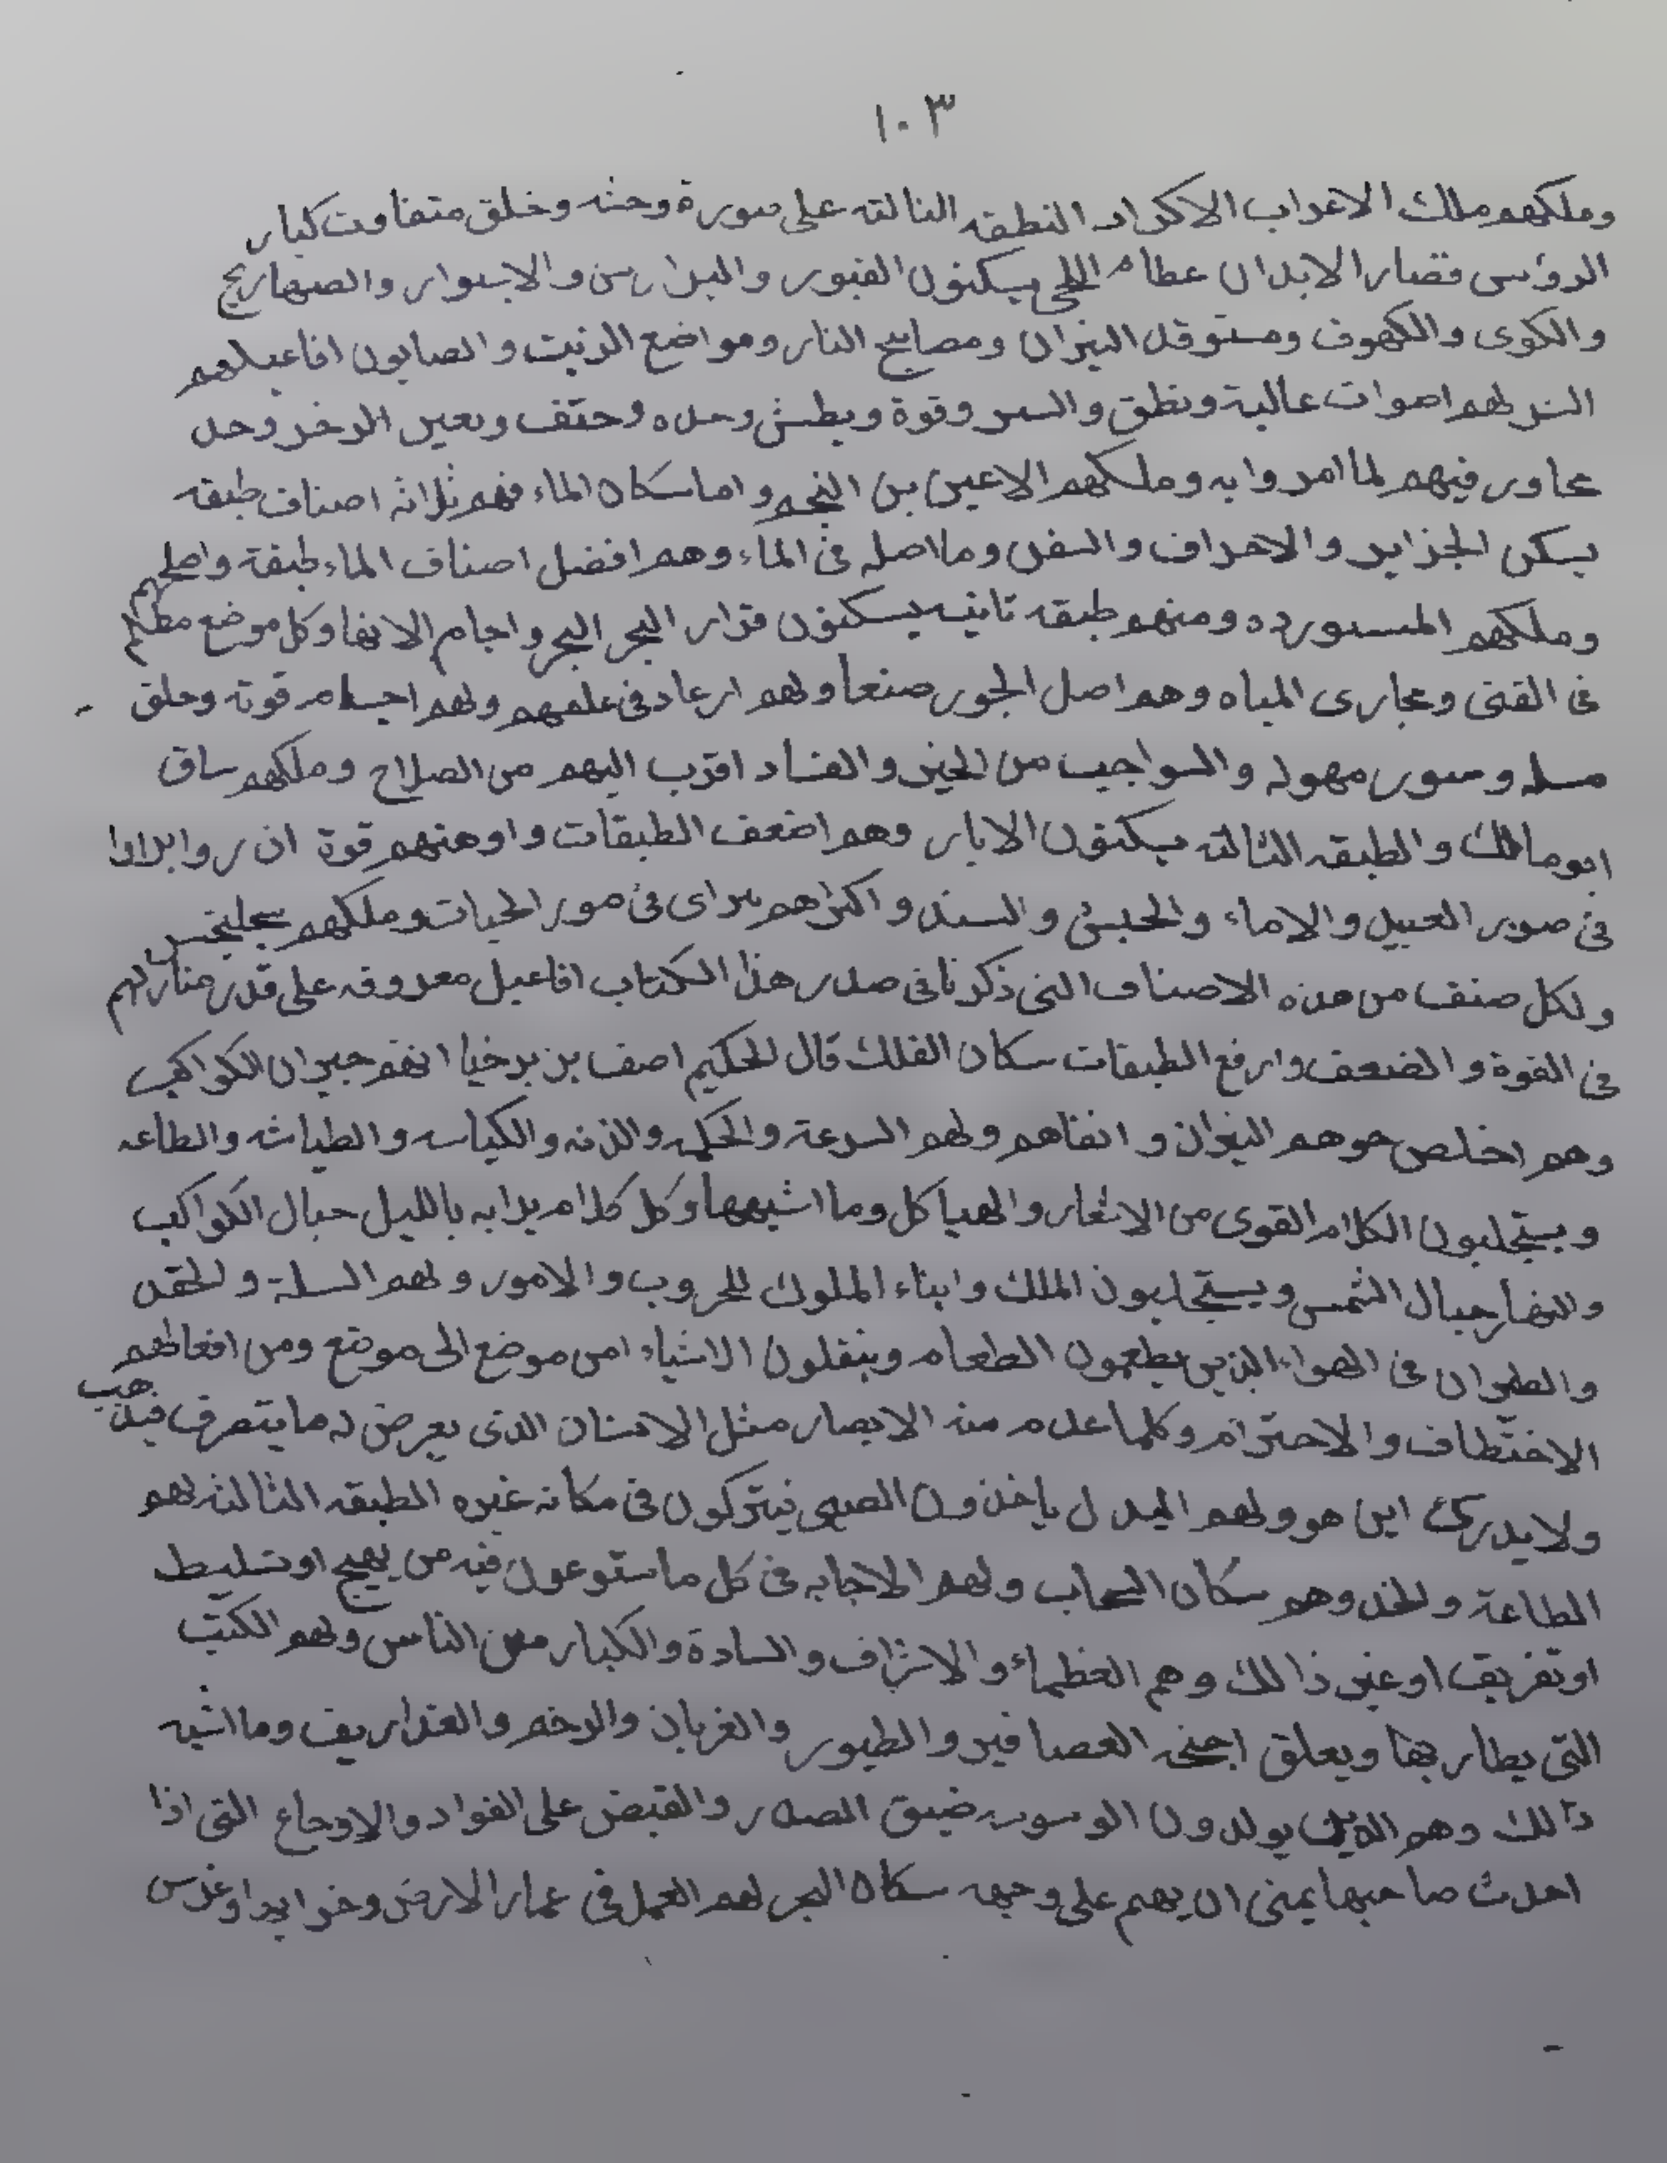 ١٠٣
وملكهم ملك الاعراب الاكراد النطقه الثالثه على صورة وحثه وخلق متفاوت كبار
الرؤس قصار الابدان عظام اللحى يسكنون القبور والبرارى والاسوار والصهاريج
والكوى والكهوف ومستوقد النيران ومصابيح النار ومواضع الزيت والصابون افاعيلهم
لهم اصوات عالية ونطق والسر وقوة وبطش وحده وحتف
فيهم لما امروا به وملكهم الاعين بن النجم واما سكان الماء فهم ثلاثه اصناف طبقه
يسكن الجزاير والاحراف والسفن وما اصله فى الماء وهم افضل اصناف الماء طبقة واصلحهم
وملكهم ومنهم طبقه ثانيه يسكنون قرار البحر البحر واجام الانها وكل موضع مظلم
فى القنى ومجارى المياه وهم اصل الجور صنعا ولهم ارعاد فى علمهم ولهم اجسام قوته وخلق
وصور مهوله والسواجيب من الجن والفساد اقرب اليهم من الصلاح وملكهم ساق
ابو مالك والطبقه الثالثه يسكنون الابار وهم اضعف الطبقات واوهنهم قوة ان
فى صور العبيد والاماء والحبش والسند واكثراهم يراى فى صور الحيات وملكهم
ولكل صنف من هذه الاصناف التى ذكرنا فى صدر هذا الكتاب افاعيل معروفه على قدر منازلهم
فى القوة والضعف وارفع الطبقات سكان الفلك قال الحكيم اصف بن برخيا انهم جيران الكواكب
وهم اخلص جوهم النيران وانفاهم ولهم السرعة والحكمه والكياسه والطياشه والطاعه
ويستجلبون الكلام القوى من الاشعار والهياكل وما اشبهها وكل كلام يدا به بالليل حبال الكواكب
والنهار حبال الشمس ويستجلبون الملك وابناء الملوك للحروب والامور ولهم السلة والحقد
والطيران فى الهواء الذين يطعمون الطعام وينقلون الاشياء من موضع الى موضع ومن افعالهم
الاختطاف والاحترام وكلما عدم منه الابصار مثل الانسان الذى يعرض له ما يتصرف فيذهب
ولا يدرى اين هو ولهم البدل ياخذون الصبى فيتركون فى مكانه غيره الطبقه الثالثه لهم
الطاعة وهم سكان السحاب ولهم الاجابه فى كل ما ستوعون فيه من يهيج او تسليط
او تفريق او غير ذالك وهم العظماء والاشراف والسادة والكبار من الناس ولهم الكتب
التى يطار بها ويعلق اجنحه العصافير والطيور والغربان والرخم والغداريف وما اشبه
ذالك وهم الذين يولدون الوسوسه ضيق الصدر والقبض على الفواد والاوجاع التى اذا
احدث صاحبها يمنى ان يهيم على وجهه سكان البحر لهم العمل فى عمار الارض وخرابها وغرس